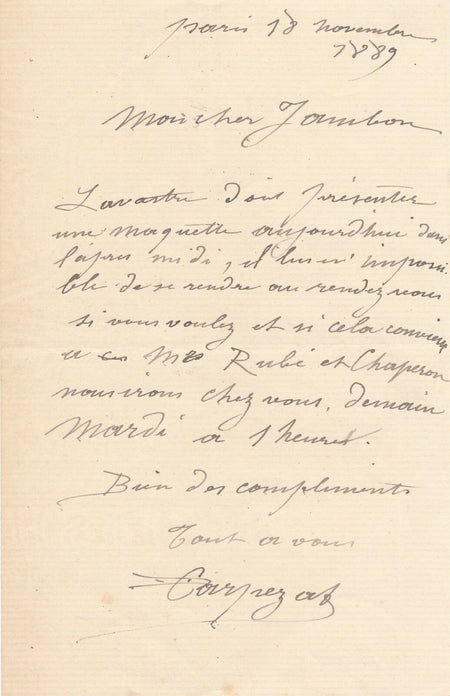 Paris 18 novembre
1889
Mon cher Jambon
Lavastre doit présenter
une maquette aujourdhui dans
l'après midi, il lui est impossi
ble de se rendre au rendez vous
si vous voulez et si cela convient
a Mrs Rubé et Chaperon
nous irons chez vous, demain
Mardi a 1 heure.
Bien des compliments
Tout a vous
Carpezat